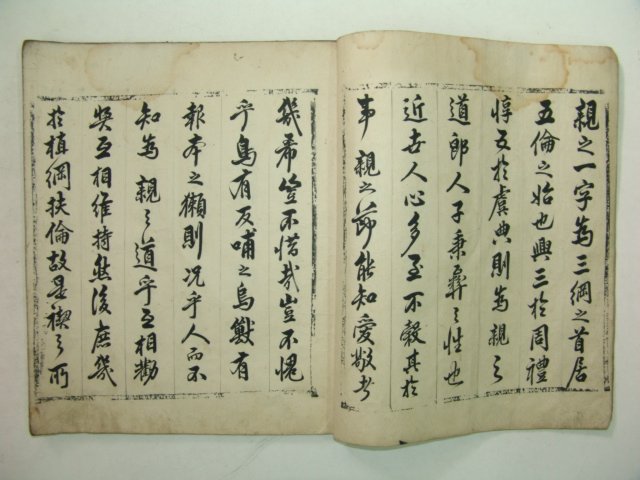 親之一字為三綱之首居
五倫之始也興三於周禮
惇五於虞典則為親之
道郎人子秉彛之性也
近世人心多至不穀其於
事親之節能知愛敬者
幾希豈不惜哉豈不愧
乎鳥有反哺之烏獸有
報本之獺則況乎人而不
知為親之道乎互相勸
奬互相維持然後庶幾
於植綱扶倫故是禊之所